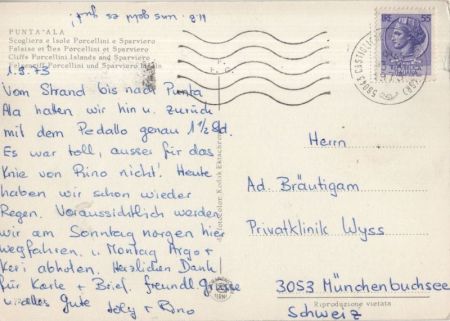 N.B. uns geht es gut!
PUNTA ALA
Scogliera e Isole Porcellini e Sparviero
Falaise et Iles Porcellini et Sparviero
Cliffs Porcellini Islands and Sparviero
Felsenriff Porcellini und Sparviero
1.9.73
Vom Strand bis nach Punta
Ala hatten wir hin u. zurück
mit dem Pedallo genau 1 1/2 Sd.
Es war toll, ausser für das
Knie von Rino nicht! Heute
haben wir schon wieder
Regen. Voraussichtlich werden
wir am Sonntag morgen hier
wegfahren u. Montag Argo +
Keri abholen. Herzlichen Dank
für Karte + Brief. freundl. Grüsse
u. alles Gute
+ Rino
Fotocolor Kodak Ektachrome
LIRE 55
58043 CASTIGLIO
Herrn
Ad. Bräutigam
Privatklinik Wyss
3053 Münchenbuchsee
Schweiz
Riproduzione vietata